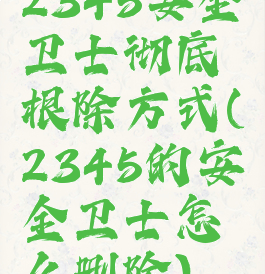 2345安全
卫士彻底
根除方式(
2345的安
全卫士怎
么删除)